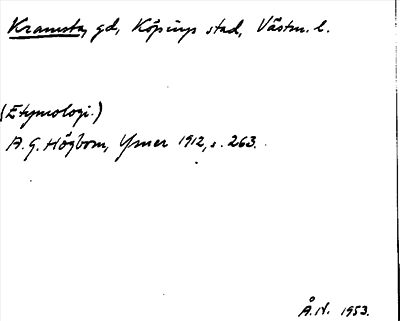 Kramsta, gd, Köpings stad, Västm. l.
(Etymologi.)
A. G. Högbom, Ymer 1912, s. 263.
Å.N. 1953.